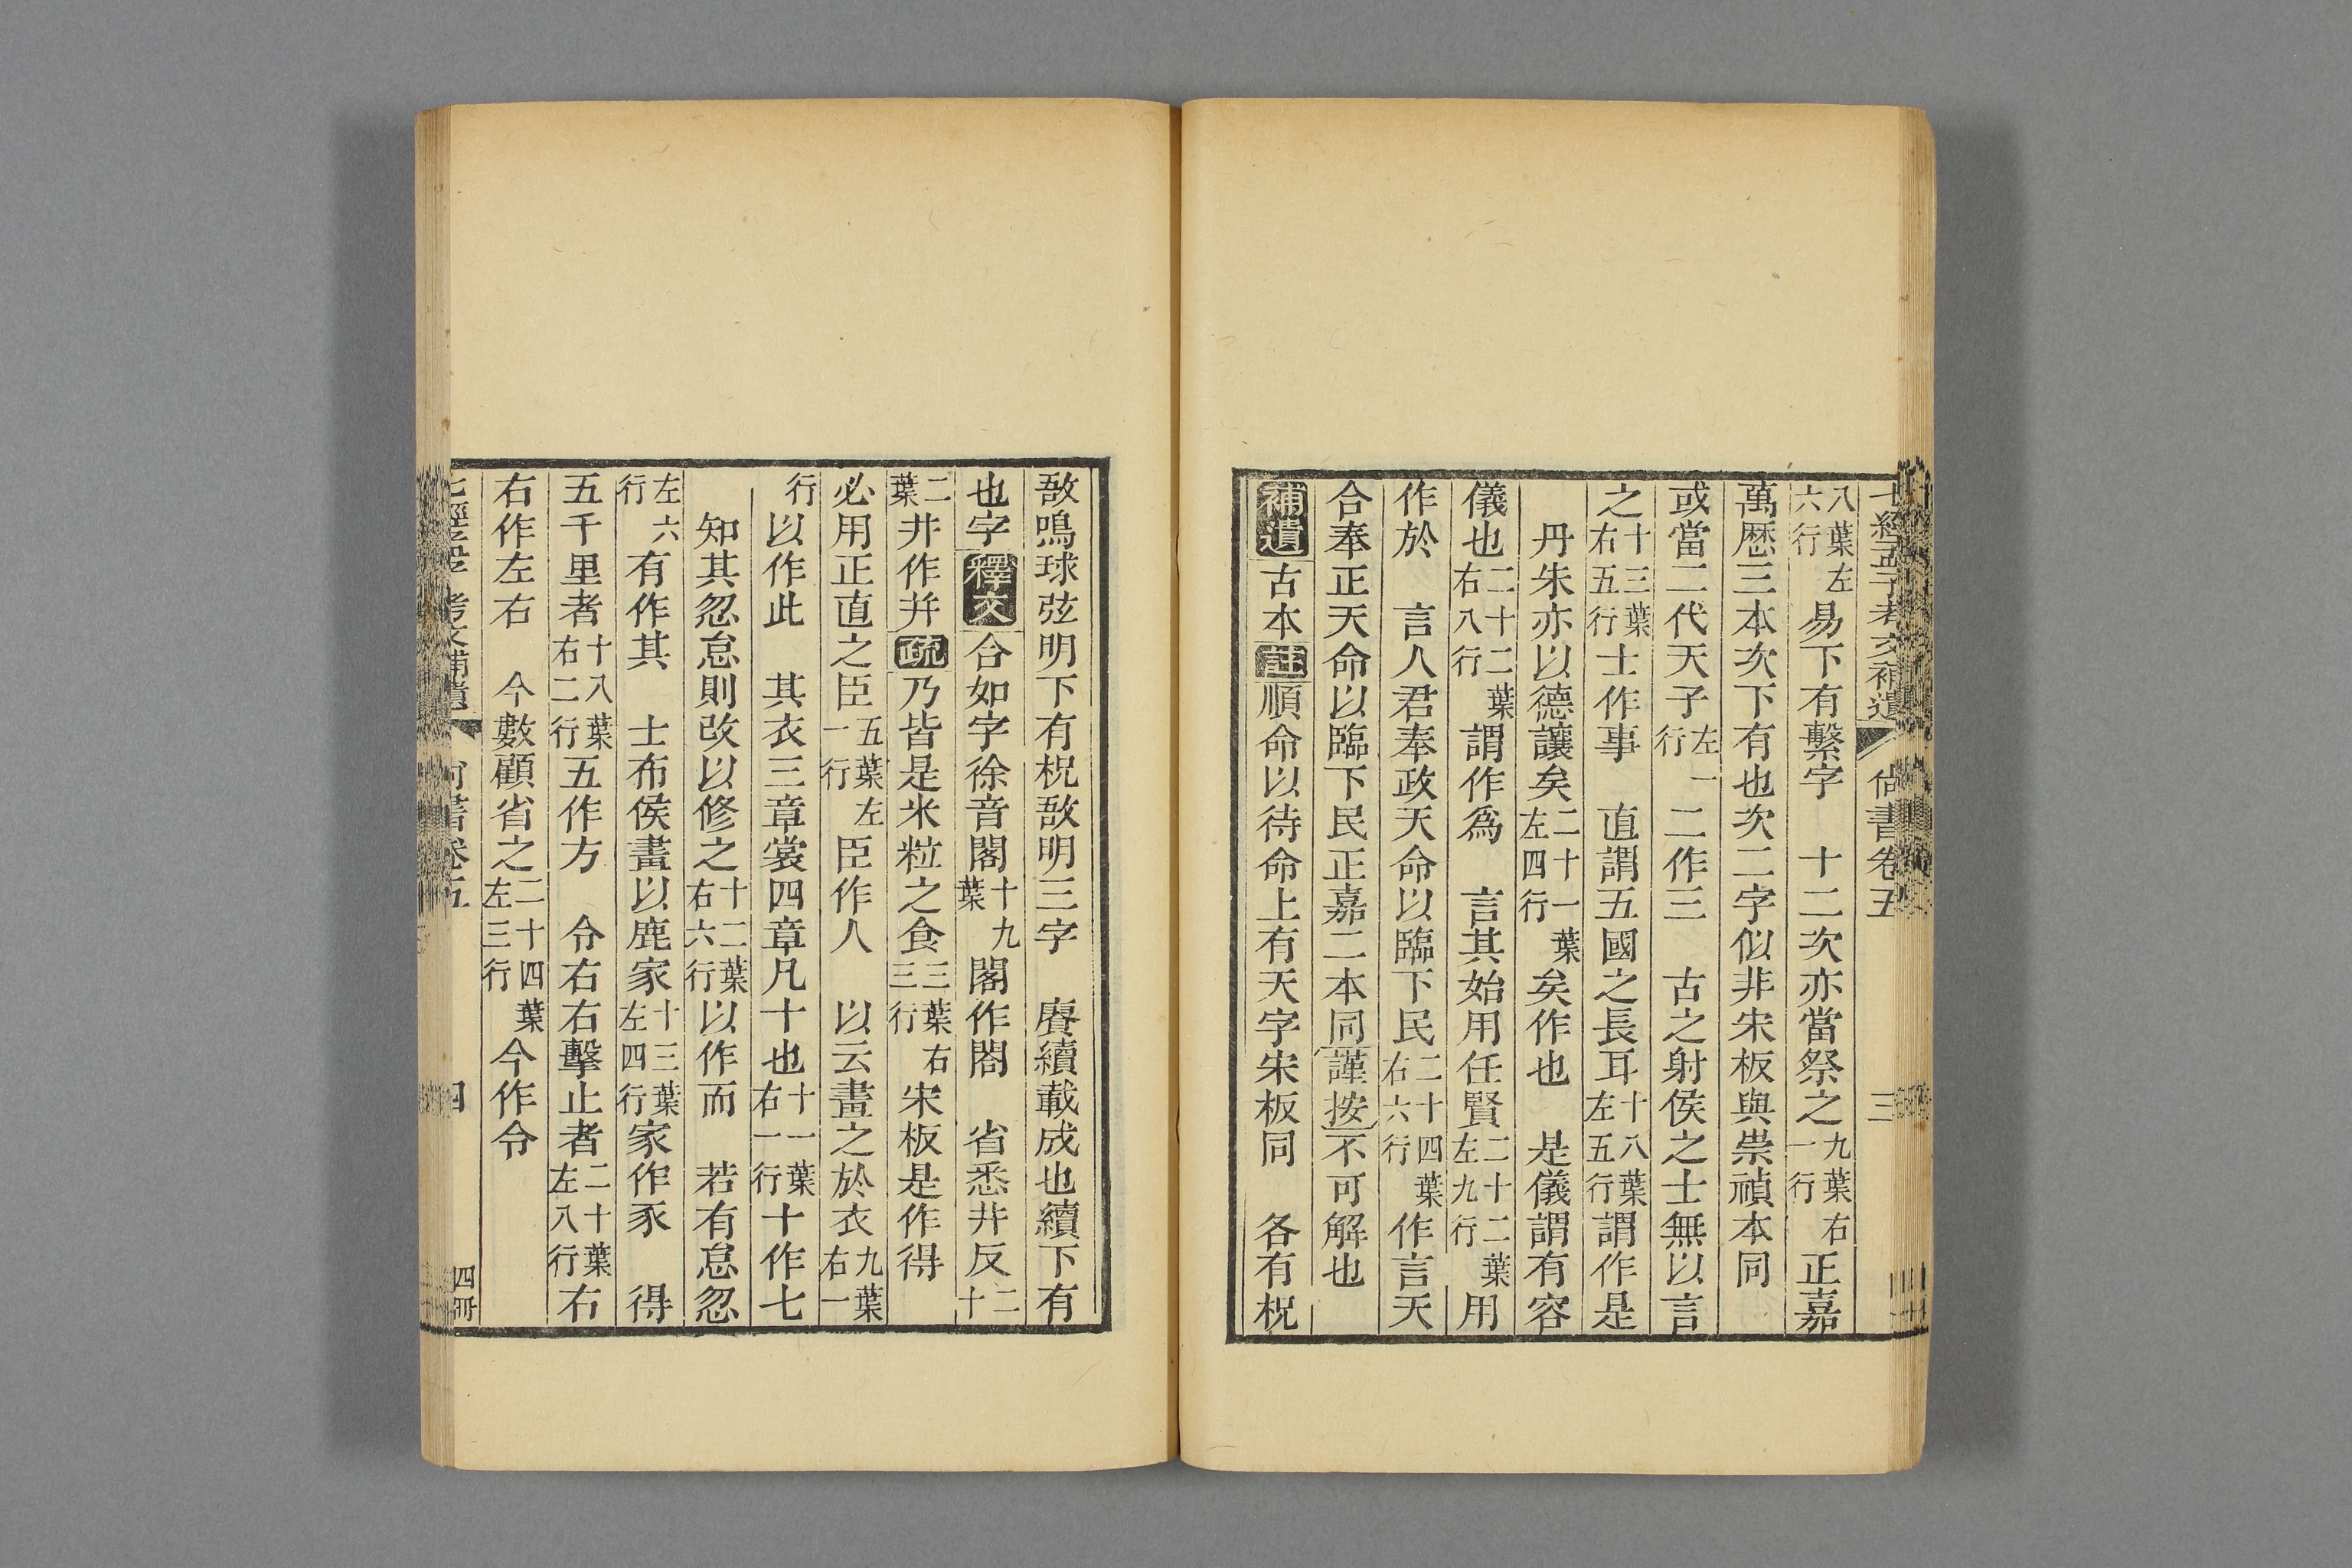 七經孟子考文補遺 尚書卷五 三
八葉左六行易下有繫字 十二次亦當祭之九葉右一行正嘉
萬歴三本次下有也次二字似非宋板與崇禎本同
或當二代天子左一行二作三 古之射侯之士無以言
之十三葉右五行士作事 直謂五國之長耳十八葉左五行謂作是
丹朱亦以德讓矣二十一葉左四行矣作也 是儀謂有容
儀也二十二葉右八行謂作爲 言其始用任賢二十二葉左九行用
作於 言人君奉政天命以臨下民二十四葉右六行作言天
合奉正天命以臨下民正嘉二本同謹按不可解也
補遺古本註順命以待命上有天字宋板同 各有柷
敔鳴球弦明下有柷敔明三字 賡續載成也續下有
也字釋文合如字徐音閤十九葉閤作閣 省悉井反二十
二葉井作并疏乃皆是米粒之食三葉右三行宋板是作得
必用正直之臣五葉左一行臣作人 以云畫之於衣九葉右一
行以作此 其衣三章裳四章凡十也十一葉右一行十作七
知其忽怠則改以修之十二葉右六行以作而 若有怠忽
左六行有作其 士布侯畫以鹿家十三葉左四行家作豕 得
五千里者十八葉右二行五作方 令右右擊止者二十葉左八行右
右作左右 今數顧省之二十四葉左三行今作令
七經孟子考文補遺 尚書卷五 四 四冊